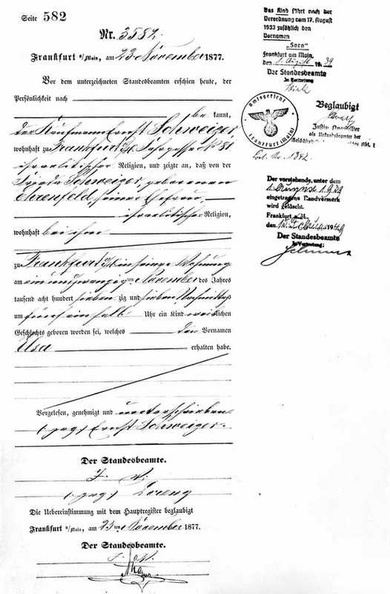 Seite 582
Nr. 3882.
Frankfurt a/Main, am 23 November 1877.
Vor dem unterzeichneten Standesbeamten erschien heute, der
Persönlichkeit nach
be kannt,
der Kaufmann Ernst Schweiger,
wohnhaft zu Frankfurt
israelitischer Religion, und zeigte an, daß von der
Schweiger, geborenen
Ehrenfeld, seiner Ehefrau,
israelitischer Religion,
wohnhaft bei ihm
zu Frankfurt a/M in seiner Wohnung
am ein und zwanzig ten November des Jahres
tausend acht hundert sieben zig und sieben Nachmittags
um fünf ein halb Uhr ein Kind weiblichen
Geschlechts geboren worden sei, welches den Vornamen
Elsa erhalten habe.
Vorgelesen, genehmigt und unterschrieben
gez. Ernst Schweiger
Der Standesbeamte.
J. V.
gez.
Die Uebereinstimmung mit dem Hauptregister beglaubigt
Frankfurt a/Main, am 23 ten November 1877.
Der Standesbeamte.
Das Kind führt nach der
Verordnung vom 17. August
1938 zusätzlich den
Vornamen
"Sara"
Frankfurt am Main
den 1. August 1939
Der Standesbeamte
in Vertretung:
Beglaubigt
Amtsgericht
Frankfurt (Main)
Der vorstehende, unter dem
1. August 1939
eingetragene Randvermerk
wird gelöscht.
Frankfurt
den
Der Standesbeamte
in Vertretung: